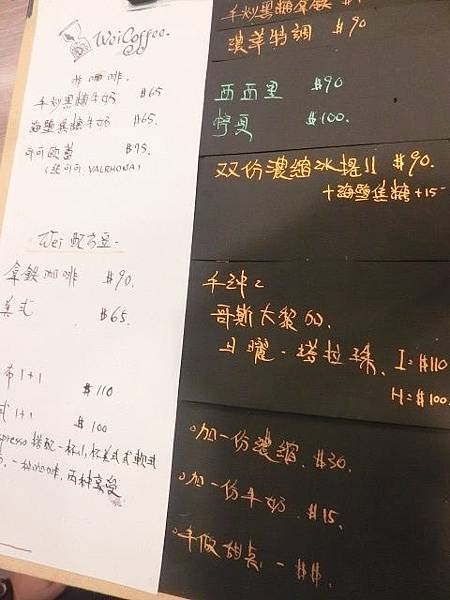 WeiCoffee.
咖啡.
手炒黑糖牛奶 $65
海鹽焦糖牛奶 $65.
可可歐蕾 $95.
(純可可 VALRHONA)
Wei 配方豆-
拿鐵咖啡 $90.
美式 $65.
布1+1 $110
式1+1 $100
presso 搭配一杯小杯美式或
一种咖啡,两种享受
手炒黑糖拿鐵
濃萃特調 $90
西西里 $90
$100.
双份濃縮冰提!! $90.
+海鹽焦糖+15-
手沖:
哥斯大黎加.
日曜-塔拉珠. I=$110
H=$100.
·加一份濃縮. $30.
·加一份牛奶. $15.
·手做甜点. - $$.